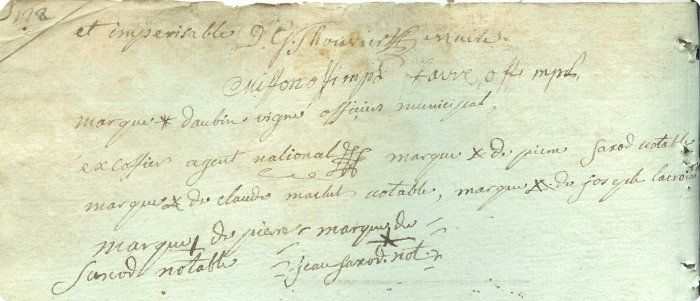 178
et imperisable D. G. Thouvier maire
Miffon offi mpal favre, offi mpl
marque x daubin vigne officier municipal,
excoffier agent national marque x de pierre saxod notable
marque x de claude machet notable, marque x de joseph lacroix
marque x de pierre marque de
saxod notable = x jean saxod. not =